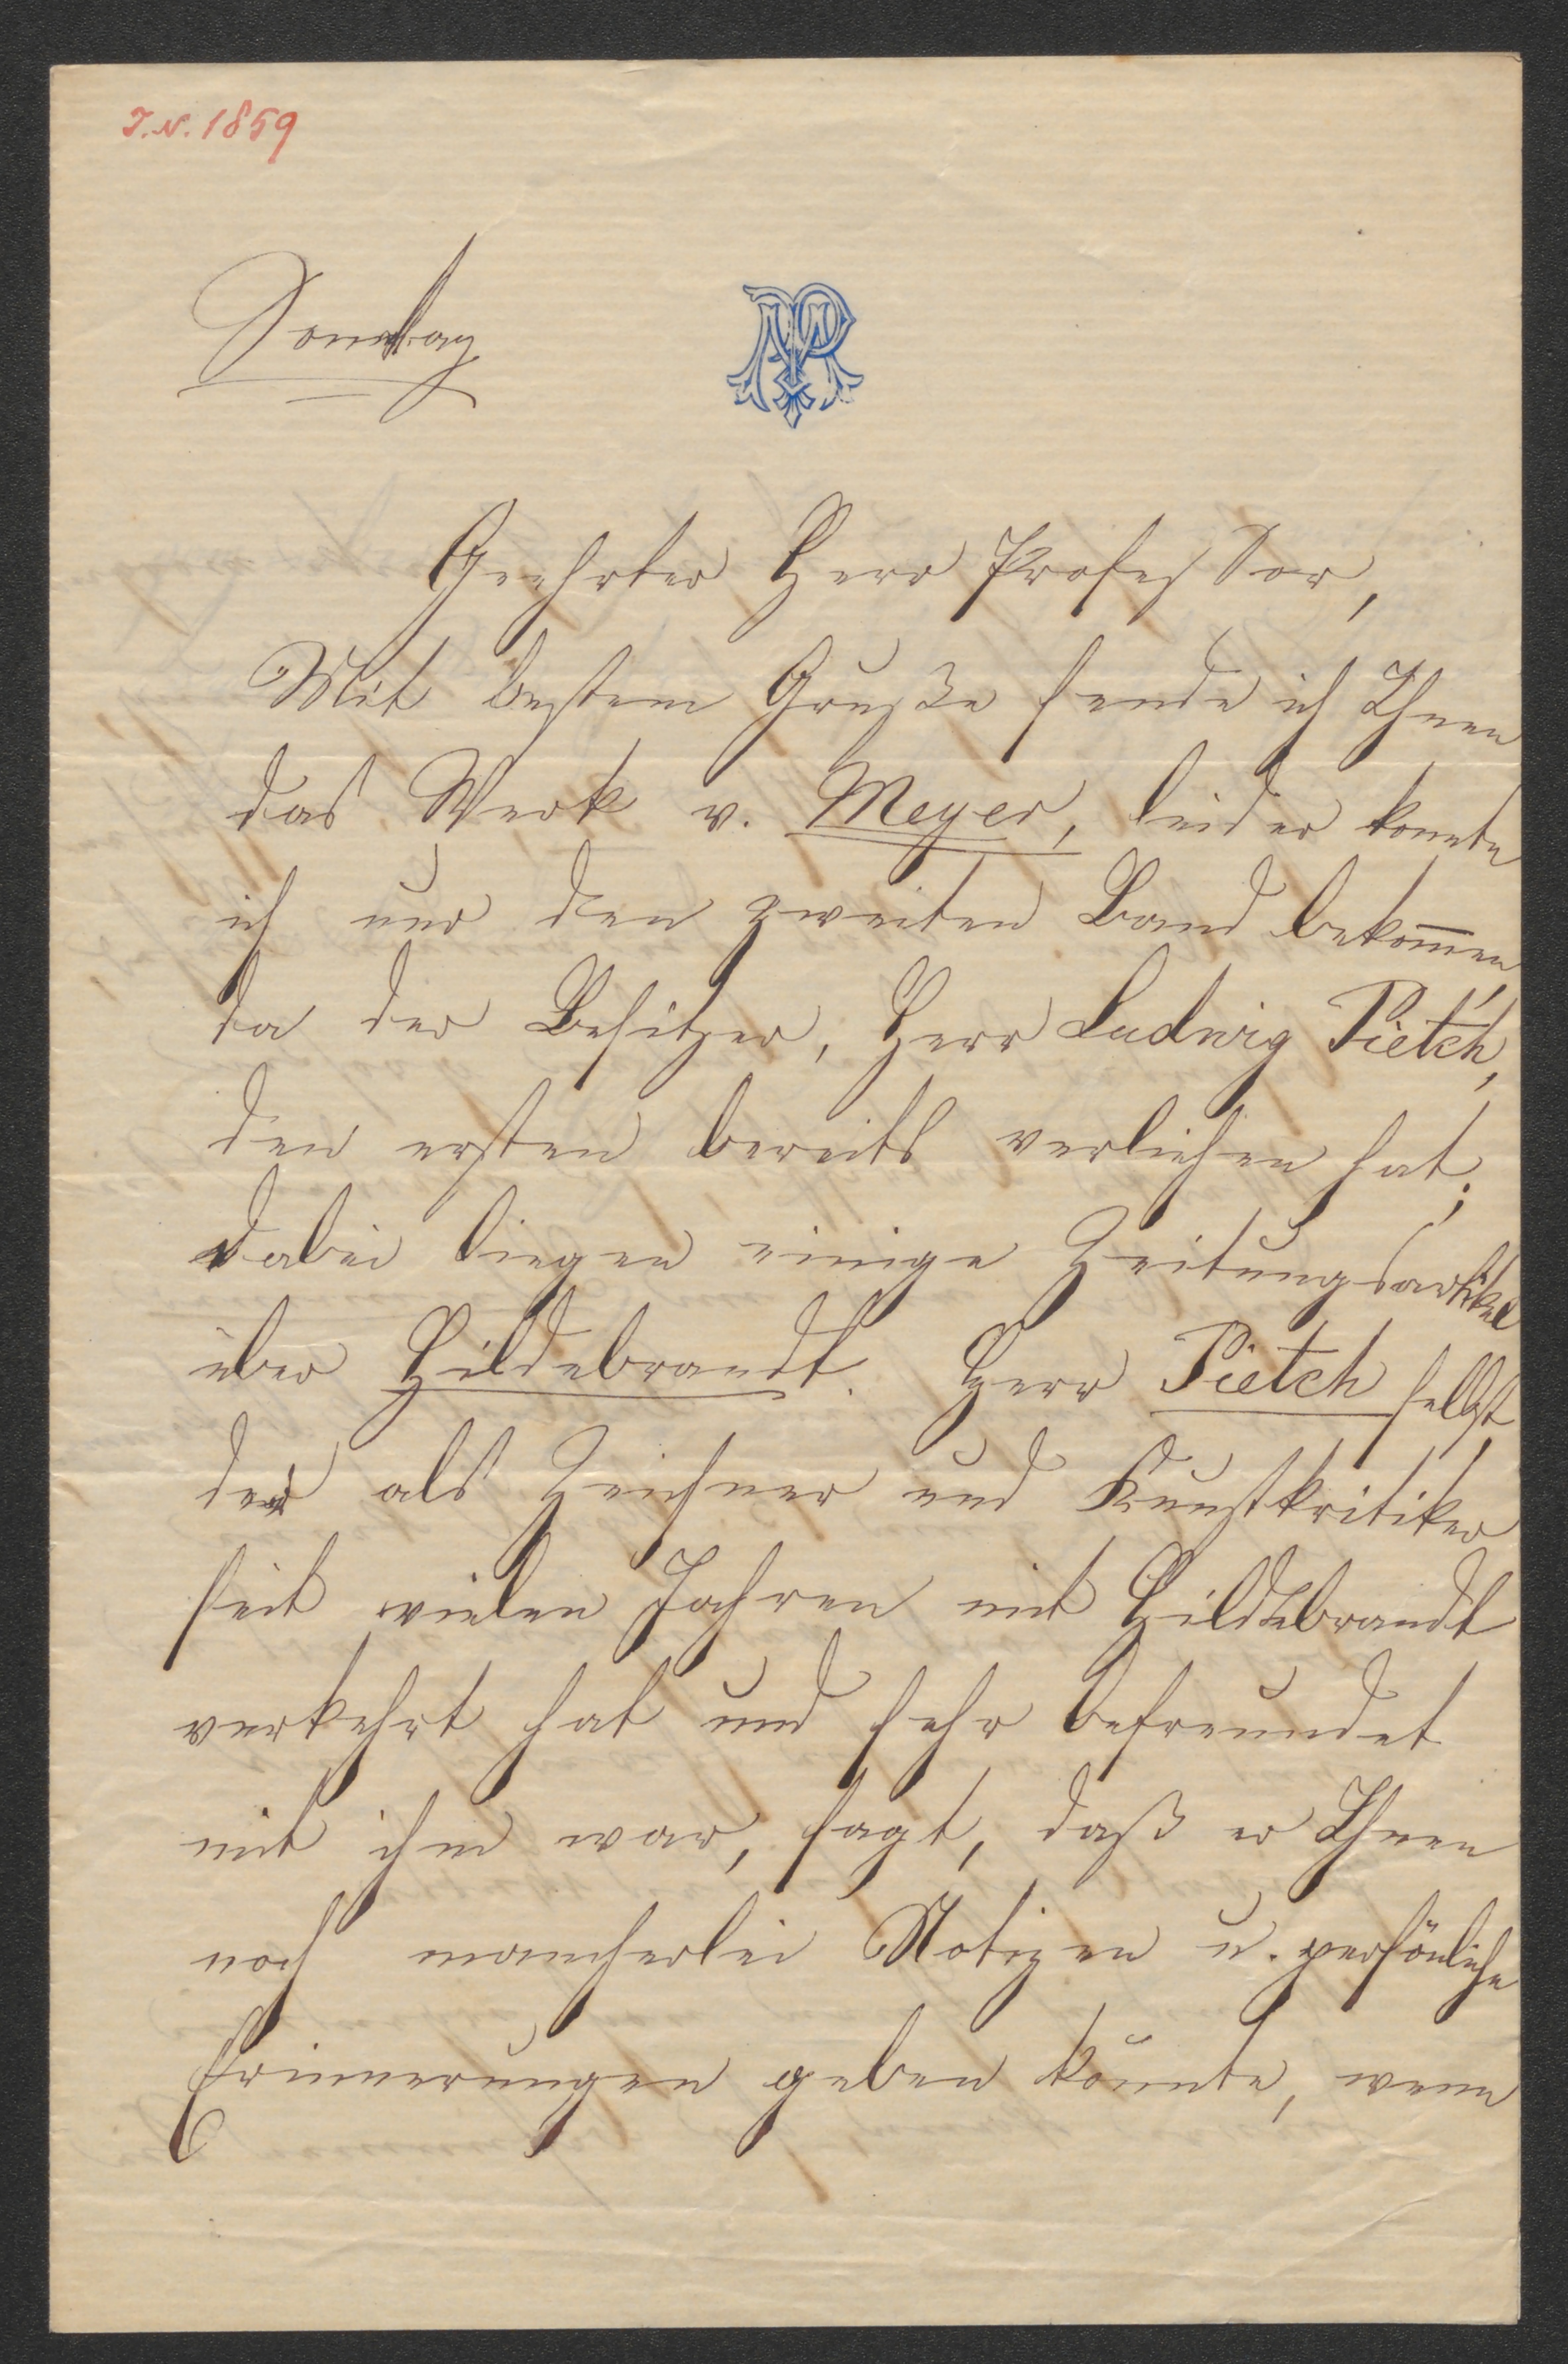 I.N. 1859
Sonntag
Geehrter Herr Professor,
Mit bestem Gruße sende ich Ihnen
das Werk v. Meyer, leider konnte
ich nur den zweiten Band bekom̄en,
da der Besitzer, Herr Ludwig Pietch,
den ersten bereits verliehen hat;
dabei liegen einige Zeitungsartikel
über Hildebrandt. Herr Pietch selbst,
der als Zeichner und Kunstkritiker
seit vielen Jahren mit Hildebrandt
verkehrt hat und sehr befreundet
mit ihm war, sagt, daß er Ihnen
noch mancherlei Notizen u. persönliche
Erinnerungen geben könnte, wenn